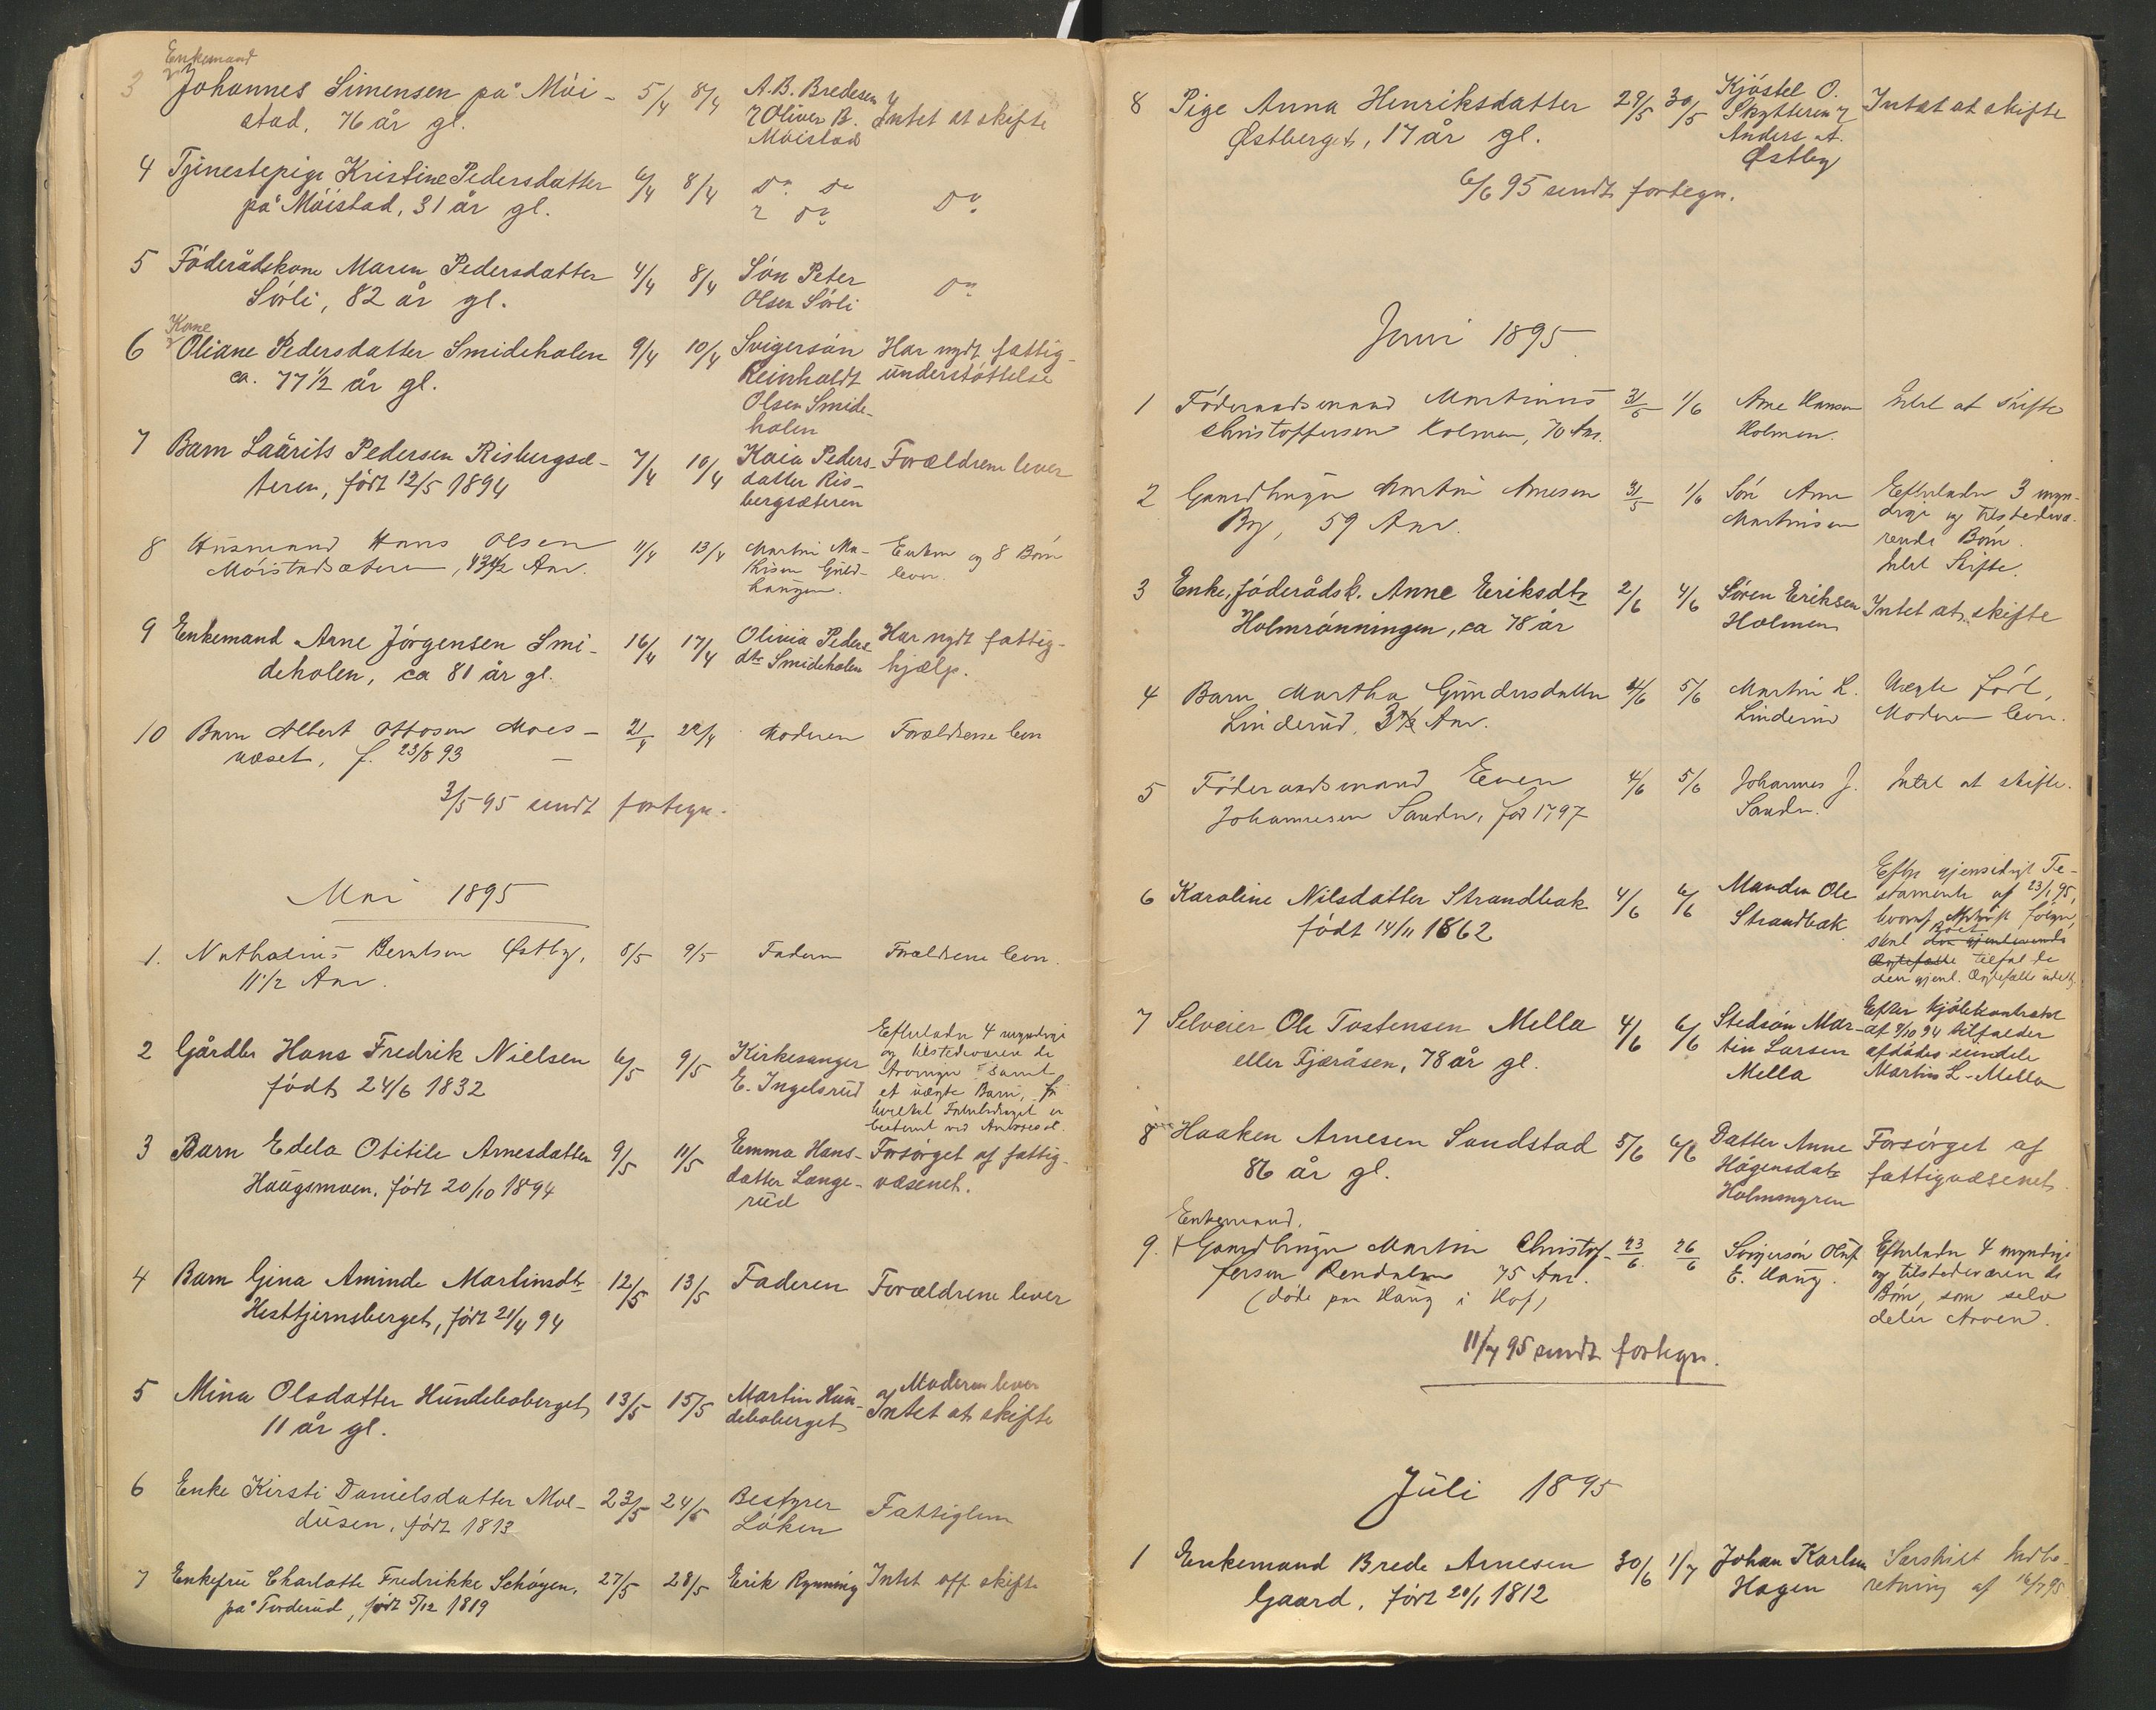 Enkemand
3 Johannes Simensen på Möi- 5/4 8/4 A.B. Bredesen
stad, 76 år gl. & Oliver B. Intet at skifte
Möistad
4 Tjenestepige Kristine Pedersdatter 6/4 8/4 Do Do
på Möistad, 31 år gl. & Do Do
5 Föderådskone Maren Pedersdatter 4/4 8/4 Sön Peter
Sörli, 82 år gl. Olsen Sörli Do
Kone
6 Oliane Pedersdatter Smideholen 9/4 10/4 Svigersön Har nydt fattig-
ca. 77 1/2 år gl. Reinholdt understöttelse
Olsen Smide-
holen
7 Barn Laürits Pedersen Risbergsæ- 7/4 10/4 Kaia Peders- Forældrene lever
teren, födt 12/5 1894 datter Ris-
bergsæteren
8 Husmand Hans Olsen 11/4 13/4 Martin Ma- Enken og 8 Börn
Möistadsæteren, Aar. Guld- lever.
haugen.
9 Enkemand Arne Jörgensen Smi- 16/4 17/4 Olivia Peders Har nydt fattig-
deholen, ca 81 år gl. dtr Smideholen hjælp.
10 Barn Albert Ottosen Moes- 21/4 22/4 Moderen Forældrene lever
næset, f. 23/8 93
3/5 95 sendt fortegn.
Mai 1895
1. Nathalius Berntsen Østby, 8/5 9/5 Faderen Forældrene lever.
11 1/2 Aar.
2 Gårdbr Hans Fredrik Nielsen 6/5 9/5 Kirkesanger Efterlader 4 myndige
födt 24/6 1832 E. Ingelsrud og tilstedeværende
Arvinger samt
et uægte Barn, for
hvilket
bestemt ved
3 Barn Edela Otitile Arnesdatter 9/5 11/5 Emma Hans- Forsörget af fattig-
Haugsmoen, födt 20/10 1894 datter Lange- væsenet.
rud
4 Barn Gina Aminde Martinsdtr 12/5 13/5 Faderen Forældrene lever
Hesttjernsberget, födt 21/4 94
5 Mina Olsdatter Hundeboberget 13/5 15/5 Martin Hun- Moderen lever
11 år gl. deboberget Intet at skifte
6 Enke Kirsti Danielsdatter Mol- 23/5 24/5 Bestyrer Fattiglem
dusen, födt 1813 Löken
7 Enkefru Charlotte Fredrikke Schöyen, 27/5 28/5 Erik Rynning Intet off skifte
på Torderud, födt 5/12 1819
8 Pige Anna Henriksdatter 29/5 30/5 Kjöstel O. Intet at skifte
Østberget, 17 år gl. Skytteren &
Anders A.
Østby
6/6 95 sendt fortegn.
Juni 1895
1 Föderaadsmand Martinus 31/5 1/6 Arne Hansen Intet at skifte
Christoffersen Holmen, 70 Aar. Holmen.
2 Gaardbruger Martin Arnesen 31/5 1/6 Sön Arne Efterlader 3 myn-
By, 59 Aar. Martinsen dige og tilstedevæ-
rende Börn.
Intet Skifte.
3 Enke, föderådsk. Anne Eriksdtr 2/6 4/6 Sören Eriksen Intet at skifte
Holmrönningen, ca 78 år Holmen
4 Barn Martha Gundersdatter 4/6 5/6 Martin L. Uægte födt,
Linderud, 3 1/2 Aar. Linderud Moderen lever.
5 Föderaadsmand Even 4/6 5/6 Johannes J. Intet at skifte.
Johannesen Sander, föd 1797 Sander.
6 Karoline Nilsdatter Strandbak 4/6 6/6 Manden Ole Efter gjensidigt Te-
födt 14/11 1862 Strandbak stamente af 23/1 95,
hvoraf Afskrift fölger,
Boet
skal den gjenlevende
Ægtefælle tilfalde
den gjenl. Ægtefælle
7 Selveier Ole Tostensen Mella 4/6 6/6 Stedsön Mar- Efter kjöbekontrakt
eller Fjæråsen, 78 år gl. tin Larsen af 9/10 94 tilfalder
Mella afdödes eiendele
Martin L. Mella
8 Haaken Arnesen Sandstad 5/6 6/6 Datter Anne Forsörget af
86 år gl. Hågensdatr fattigvæsenet.
Holmmyren
Enkemand.
9. Gaardbruger Martin Christof- 23/6 26/6 Svigersön Oluf Efterlader 4 myndige
fersen Rendalen 75 Aar. E. Haug. og tilstedeværende
(döde paa Haug i Hof) Börn, som selv
deler Arven.
11/7 95 sendt fortegn.
Juli 1895
1 Enkemand Brede Arnesen 30/6 1/7 Johan Karlsen Særskilt Indbe-
Gaard, födt 20/1 1812 Hagen retning af 16/7 95